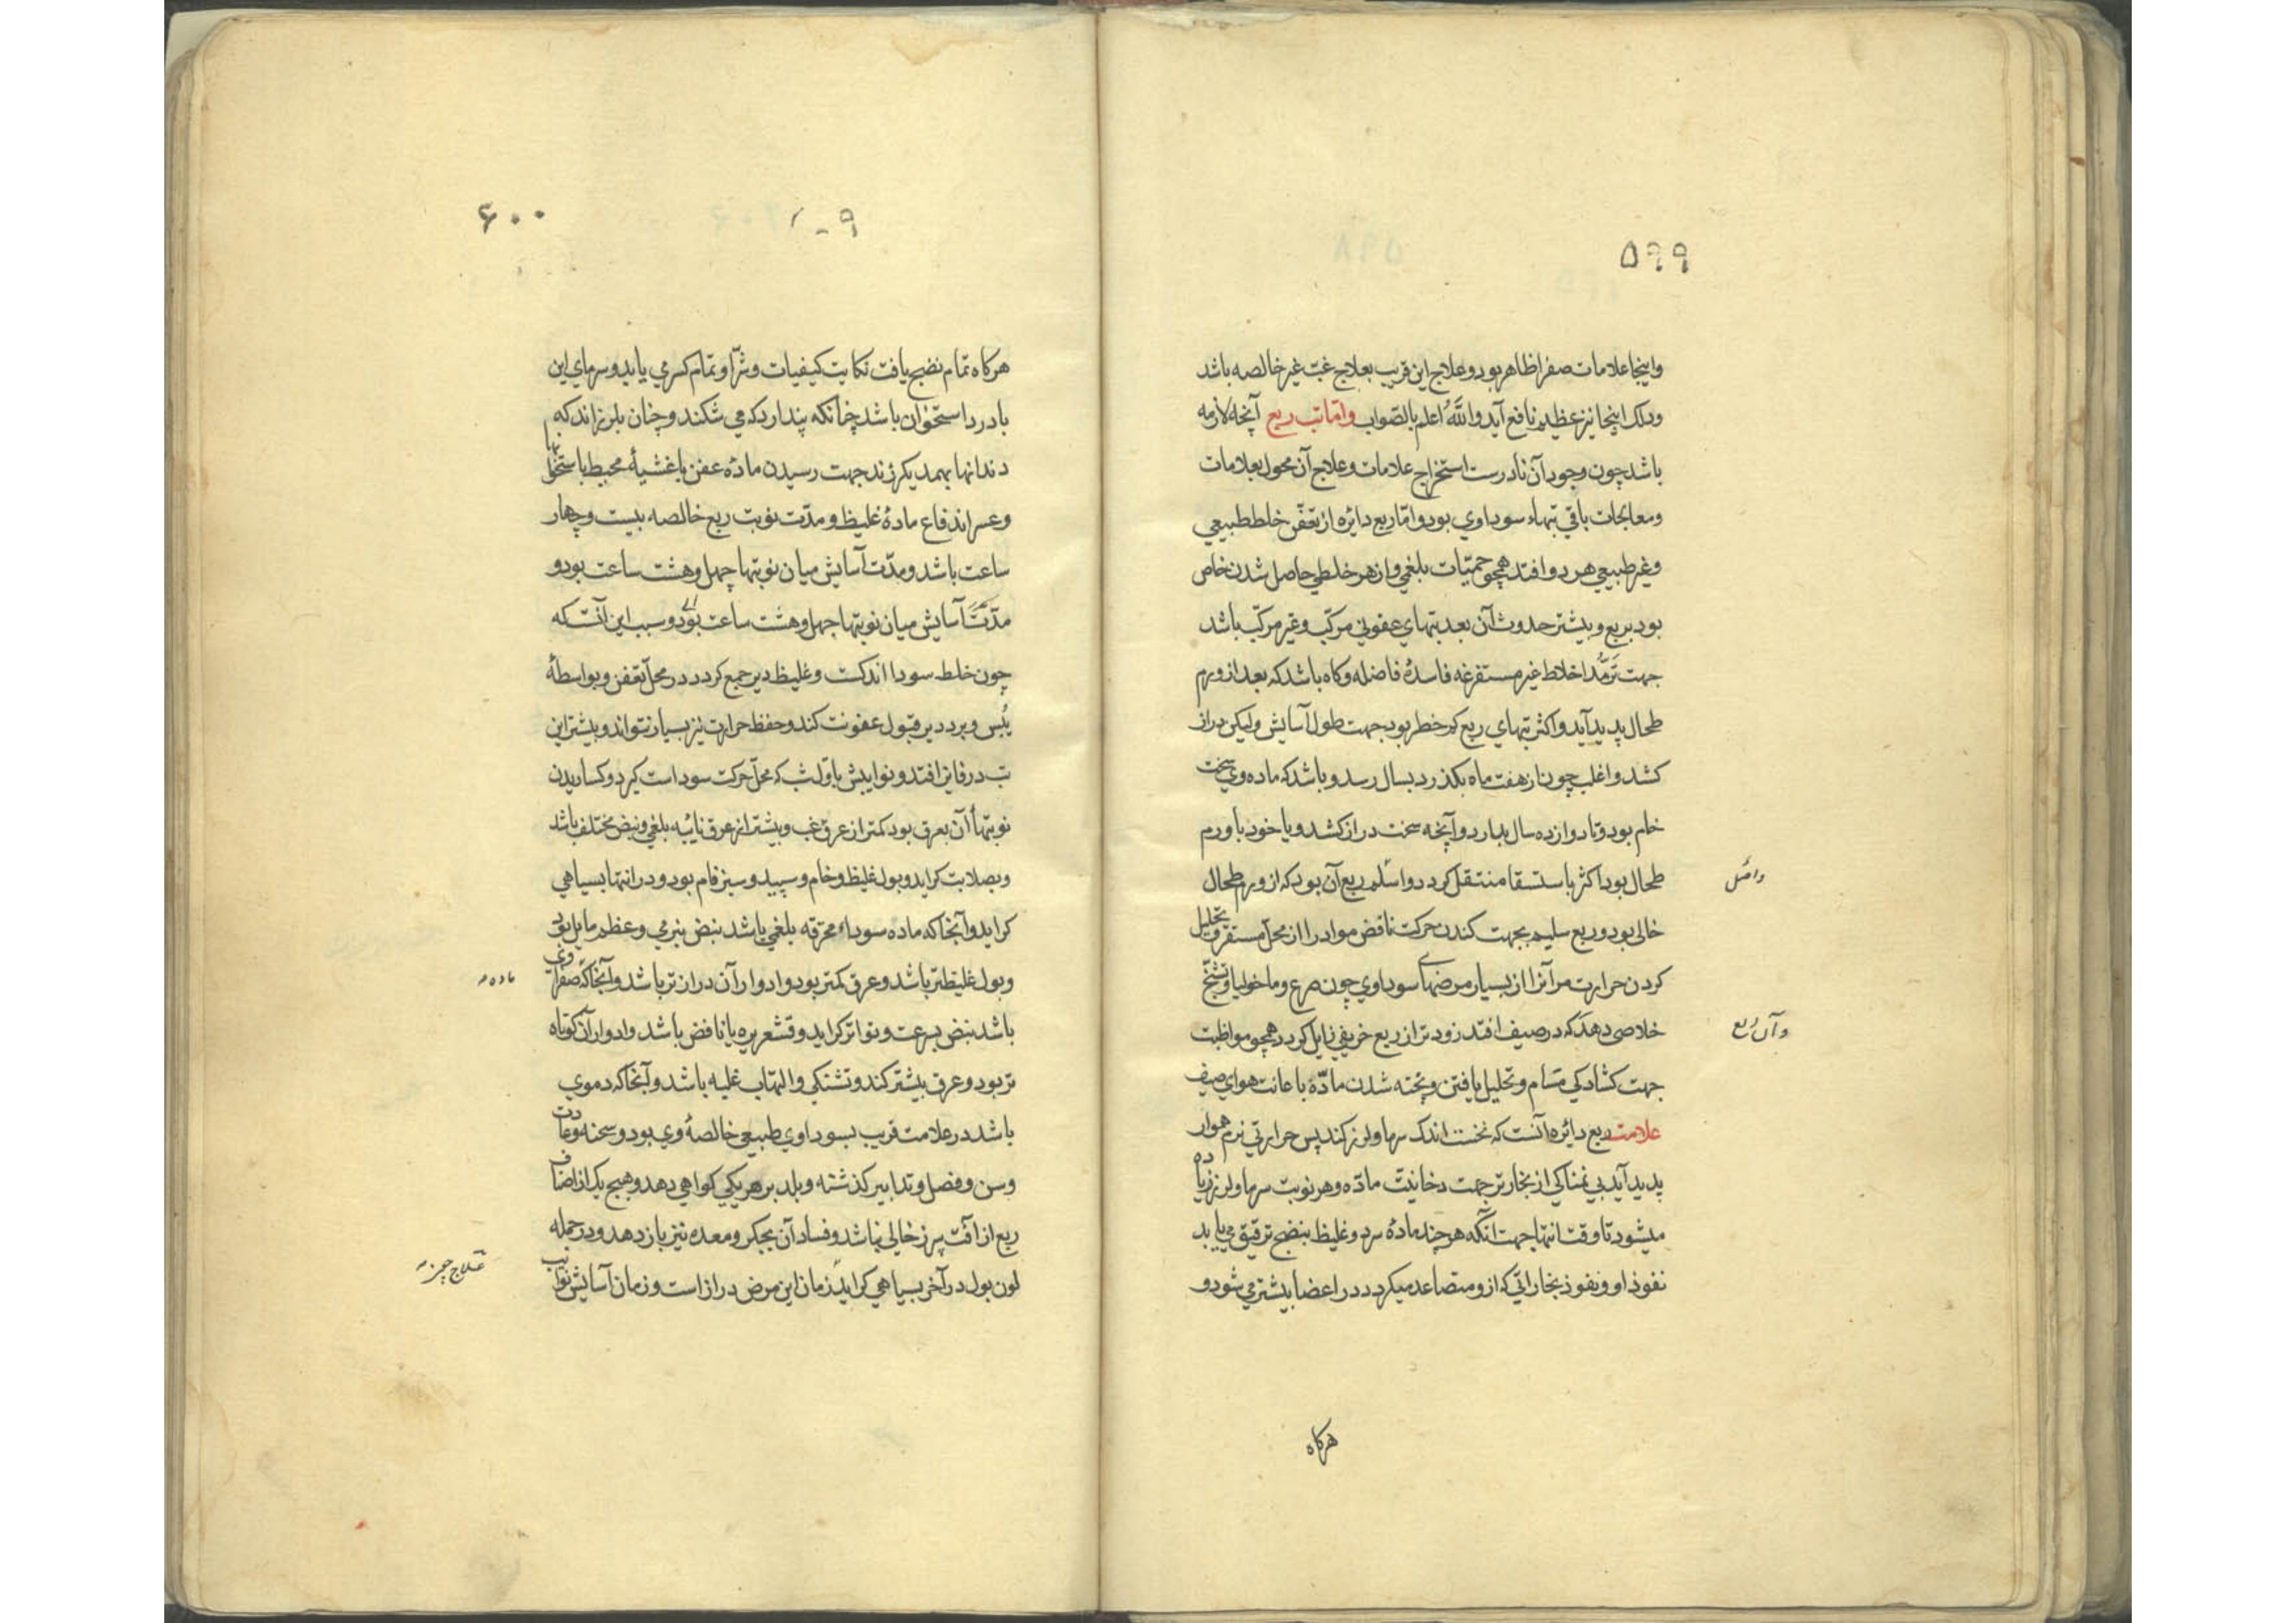 ۵۹۹
واینجا علامات صفرا ظاهر بود و علاج این قریب بعلاج غب غیر خالصه باشد
ودلک اینجا نیز عظیم نافع آید والله اعلم بالصواب واما تب ربع آنچه لازمه
باشد چون وجود آن نادرست استخراج علامات و علاج آن محول بعلامات
ومعالجات باقی تبهاء سوداوی بود واما ربع دائره از تعفن خلط طبیعی
وغیر طبیعی هر دو افتد همچو حمیات بلغمی واز هر خلطی حاصل شدن خاص
بود بربع وبیشتر حدوث آن بعد تبهای عفونی مرکب وغیر مرکب باشد
جهت ترمد اخلاط غیر مستفرغه فاسدهٔ فاضله وکاه باشد که بعد از ورم
طحال پدید آید واکثر تبهای ربع کم خطر بود بجهت طول آسایش ولیکن دراز
کشد واغلب چون از هفت ماه بکذرد بسال رسد و باشد که ماده وی سخت
خام بود وتا دوازده سال بدارد وآنچه سخت دراز کشد ویا خود با ورم
طحال بود اکثر باستسقا منتقل کردد واسلم ربع آن بود که از ورم طحال
خالی بود وربع سلیم بجهت کندن حرکت نافض مواد را از محل مستقر وتحلیل
کردن حرارت مر آنرا از بسیار مرضهای سوداوی چون صرع وماخولیا وتشنج
خلاصی دهد که در صیف افتد زودتر از ربع خریفی زایل کردد همچو مواظبت
جهت کشادکی مسام وتحلیل یافتن وپخته شدن ماده باعانت هوای صیف
علامت ربع دائره آنست که نخست اندک سرما ولرز کند پس حرارتی نرم هموار
پدید آید بی نمناکی از بخار تر جهت دخانیت ماده وهر نوبت سرما ولرز زیاده
میشود تا وقت انتها جهت آنکه هر چند مادهٔ سرد وغلیظ بنضج ترقیق می یابد
نفوذ او ونفوذ بخاراتی که ازو متصاعد میکردد در اعضا بیشتر می شود و
وآن ربع
هرکاه
۶۰۰
هرکاه تمام نضج یافت نکایت کیفیات وشر او تمام کسری یابد وسرمای این
با درد استخوان باشد چنانکه پندارد که می شکنند وچنان بلرزاند که
دندانها بهمدیکر زند جهت رسیدن مادهٔ عفن باغشیهٔ محیط باستخوانها
وعسر اندفاع مادهٔ غلیظ ومدت نوبت ربع خالصه بیست وچهار
ساعت باشد ومدت آسایش میان نوبتها چهل وهشت ساعت بود و
مدت آسایش میان نوبتها چهل وهشت ساعت بود وسبب این آنست که
چون خلط سودا اندکست وغلیظ دیر جمع کردد در محل تعفن وبواسطهٔ
یبس وبرد دیر قبول عفونت کند وحفظ حرارت نیز بسیار نتواند وبیشتر این
تب در فایز افتد ونوایبش باول شب که محل حرکت سوداست کیرد وکساریدن
نوبتهاء آن بعرق بود کمتر از عرق غب وبیشتر از عرق نائبه بلغمی ونبض مختلف باشد
وبصلابت کراید وبول غلیظ وخام وسپید وسبز فام بود ودر انتها بسیاهی
کراید وآنجا که ماده سوداء محترقه بلغمی باشد نبض بنرمی وعظم مایل بود
وبول غلیظتر باشد وعرق کمتر بود وادوار آن درازتر باشد وآنجا که صفراوی
ماده
باشد نبض بسرعت وتواتر کراید وقشعریره یا نافض باشد وادوار آن کوتاه
تر بود وعرق بیشتر کند وتشنکی والتهاب غلبه باشد وآنجا که دموی
باشد در علامت قریب بسوداوی طبیعی خالصهٔ وی بود وسحنه وعادت
وسن وفصل وتدابیر کذشته وبلد بر هر یکی کواهی دهد وهیچ یک از اصناف
ربع از آفت سپرز خالی نباشد وفساد آن بجکر ومعده نیز باز دهد ودر جمله
لون بول در آخر بسیاهی کراید زمان این مرض دراز است وزمان آسایش نوایب